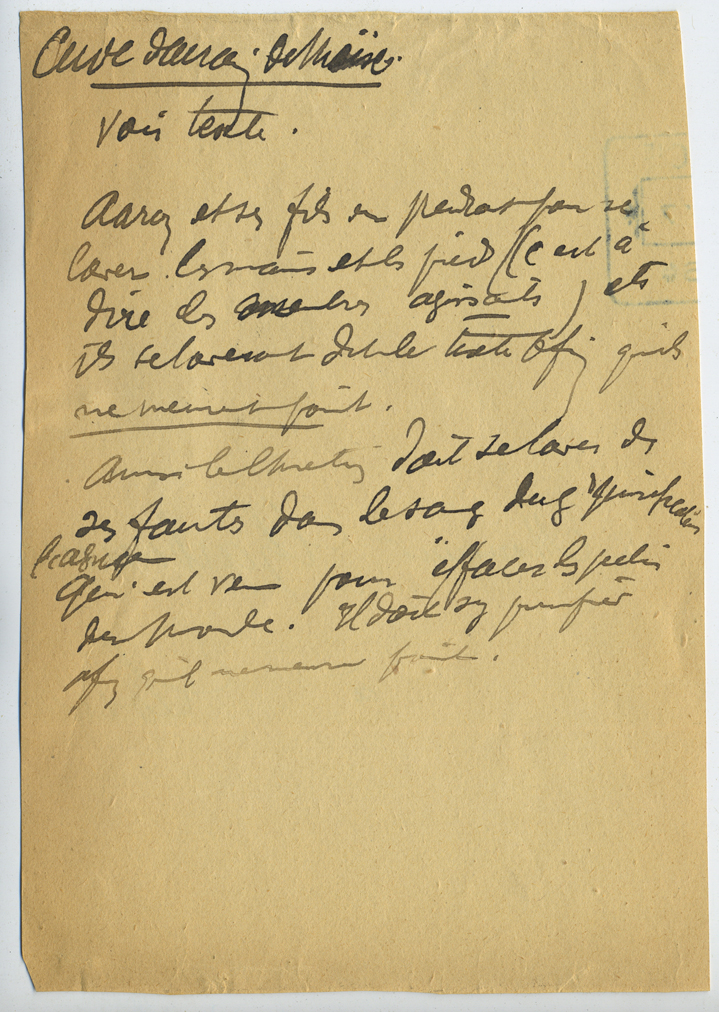 Cuve d'airain de Moïse.
voir texte.
Aaron et ses fils en prendront pour se
laver les mains et les pieds (c'est à
dire les membres agissants) et
ils se laveront dit le texte afin qu'ils
ne meurent point.
Ainsi le Chrétien doit se laver de
ses fautes dans le sang du
l'agneau
qui est venu pour effacer les péchés
du monde. Il doit s'y purifier
afin qu'il ne meure point.